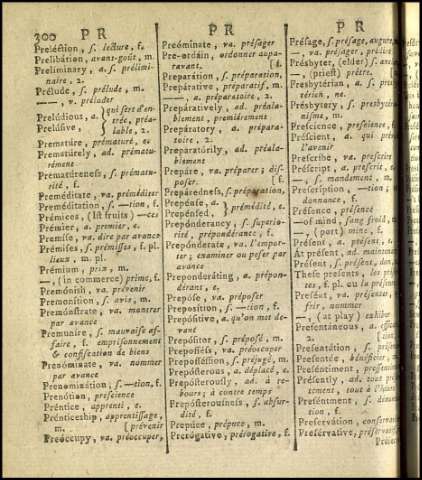 300 P R
P R
P R
Preléction, s. lecture, f.
Prelibátion, avant-goût, m.
Preliminary, a. s. prélimi-
naire, 2.
Prélude, s. prélude, m.
——, v. préluder
Prelúdious, a.
Prelúsive,
qui sert d'en-
trée, préa-
lable, 2.
Prematúre, prématuré, e
Prematúrely, ad. prématu-
rément
Prematúreness, s. prématu-
rité, f.
Preméditate, va. préméditer
Preméditation, s. —tion, f.
Prémices, (ist fruits) —ces
Prémier, a. premier, e.
Premíse, va. dire par avance
Prémises, s. prémisses, f. pl.
lieux, m. pl.
Prémium, prix, m.
—, (in commerce) prime, f.
Premónish, va. prévenir
Premonítion, s. avis, m.
Premónstrate, va. montrer
par avance
Premunire, s. mauvaise af-
faire, f. emprisonnement
& confiscation de biens
Prenóminate, va. nommer
par avance
Prenomination, s. —tion, f.
Prenótion, prescience
Préntice, apprenti, e.
Prénticeship, apprentissage,
m. [prévenir
Preóccupy, va. préoccuper,
Preóminate, va. présager
Pre-ordáin, ordonner aupa-
ravant. [f.
Preparátion, s. préparation,
Prepárative, preparatif, m.
——, a. préparatoire, 2.
Prepáratively, ad. préala-
blement, premièrement
Prepáratory, a. prépara-
toire, 2.
Prepáratorily, ad. préala-
blement
Prepáre, va. préparer; dis-
poser. [f.
Prepáredness, s. préparation,
Prepénse, a.
Prepénsed,
prémédité, e.
Prepónderancy, s. supério-
rité, prépondérance; f.
Prepónderate, va. l'empor-
ter; examiner ou peser par
avance
Preponderáting, a. prépon-
dérant, e.
Prepóse, va. préposer
Preposítion, s. —tion, f.
Prepósitive, a. qu'on met de-
vant
Prepósitor, s. préposé, m.
Prepossés, va. préoccuper
Preposséssion, s. préjugé, m.
Prepósterous, a. déplacé, e.
Prepósterously, ad. à re-
bours; à contre temps
Prepósterousness, s. absur-
dité, f.
Prepúce, prépuce, m.
Prerógative, prérogative, f.
Présage, s. présage, augure,
—, va. présager, prédire
Présbyter, (elder) s. ancien
—, (priest) prêtre.
Presbytérian, a. s.
ne.
Présbytery, s.
nisme, m.
Prescience, prescience, f.
Préscient, a. qui
l'avenir
Prescríbe, va. prescrire
Préscript, a. prescrit, e.
—, s. mandement, m.
Prescription, —tion;
donnance, f.
Présence, présence
—of mind, sang froid, m.
—, (port) mine, f.
Présent, a. présent, e.
At présent, ad. maintenant
Présent, s. présent, don, m.
These presents, les
tes, f. pl. ou la présente
Presént, va. présenter,
frir, nommer
—, (at play) exhiber
Presentáneous, a.
2.
Presentátion, s.
Presentée, bénéficier,
Preséntiment, pressentiment
Présently, ad. tout
sent, tout à l'heure
Preséntment, s.
tion, f.
Preservátion, conservation
Presérvative, préservatif